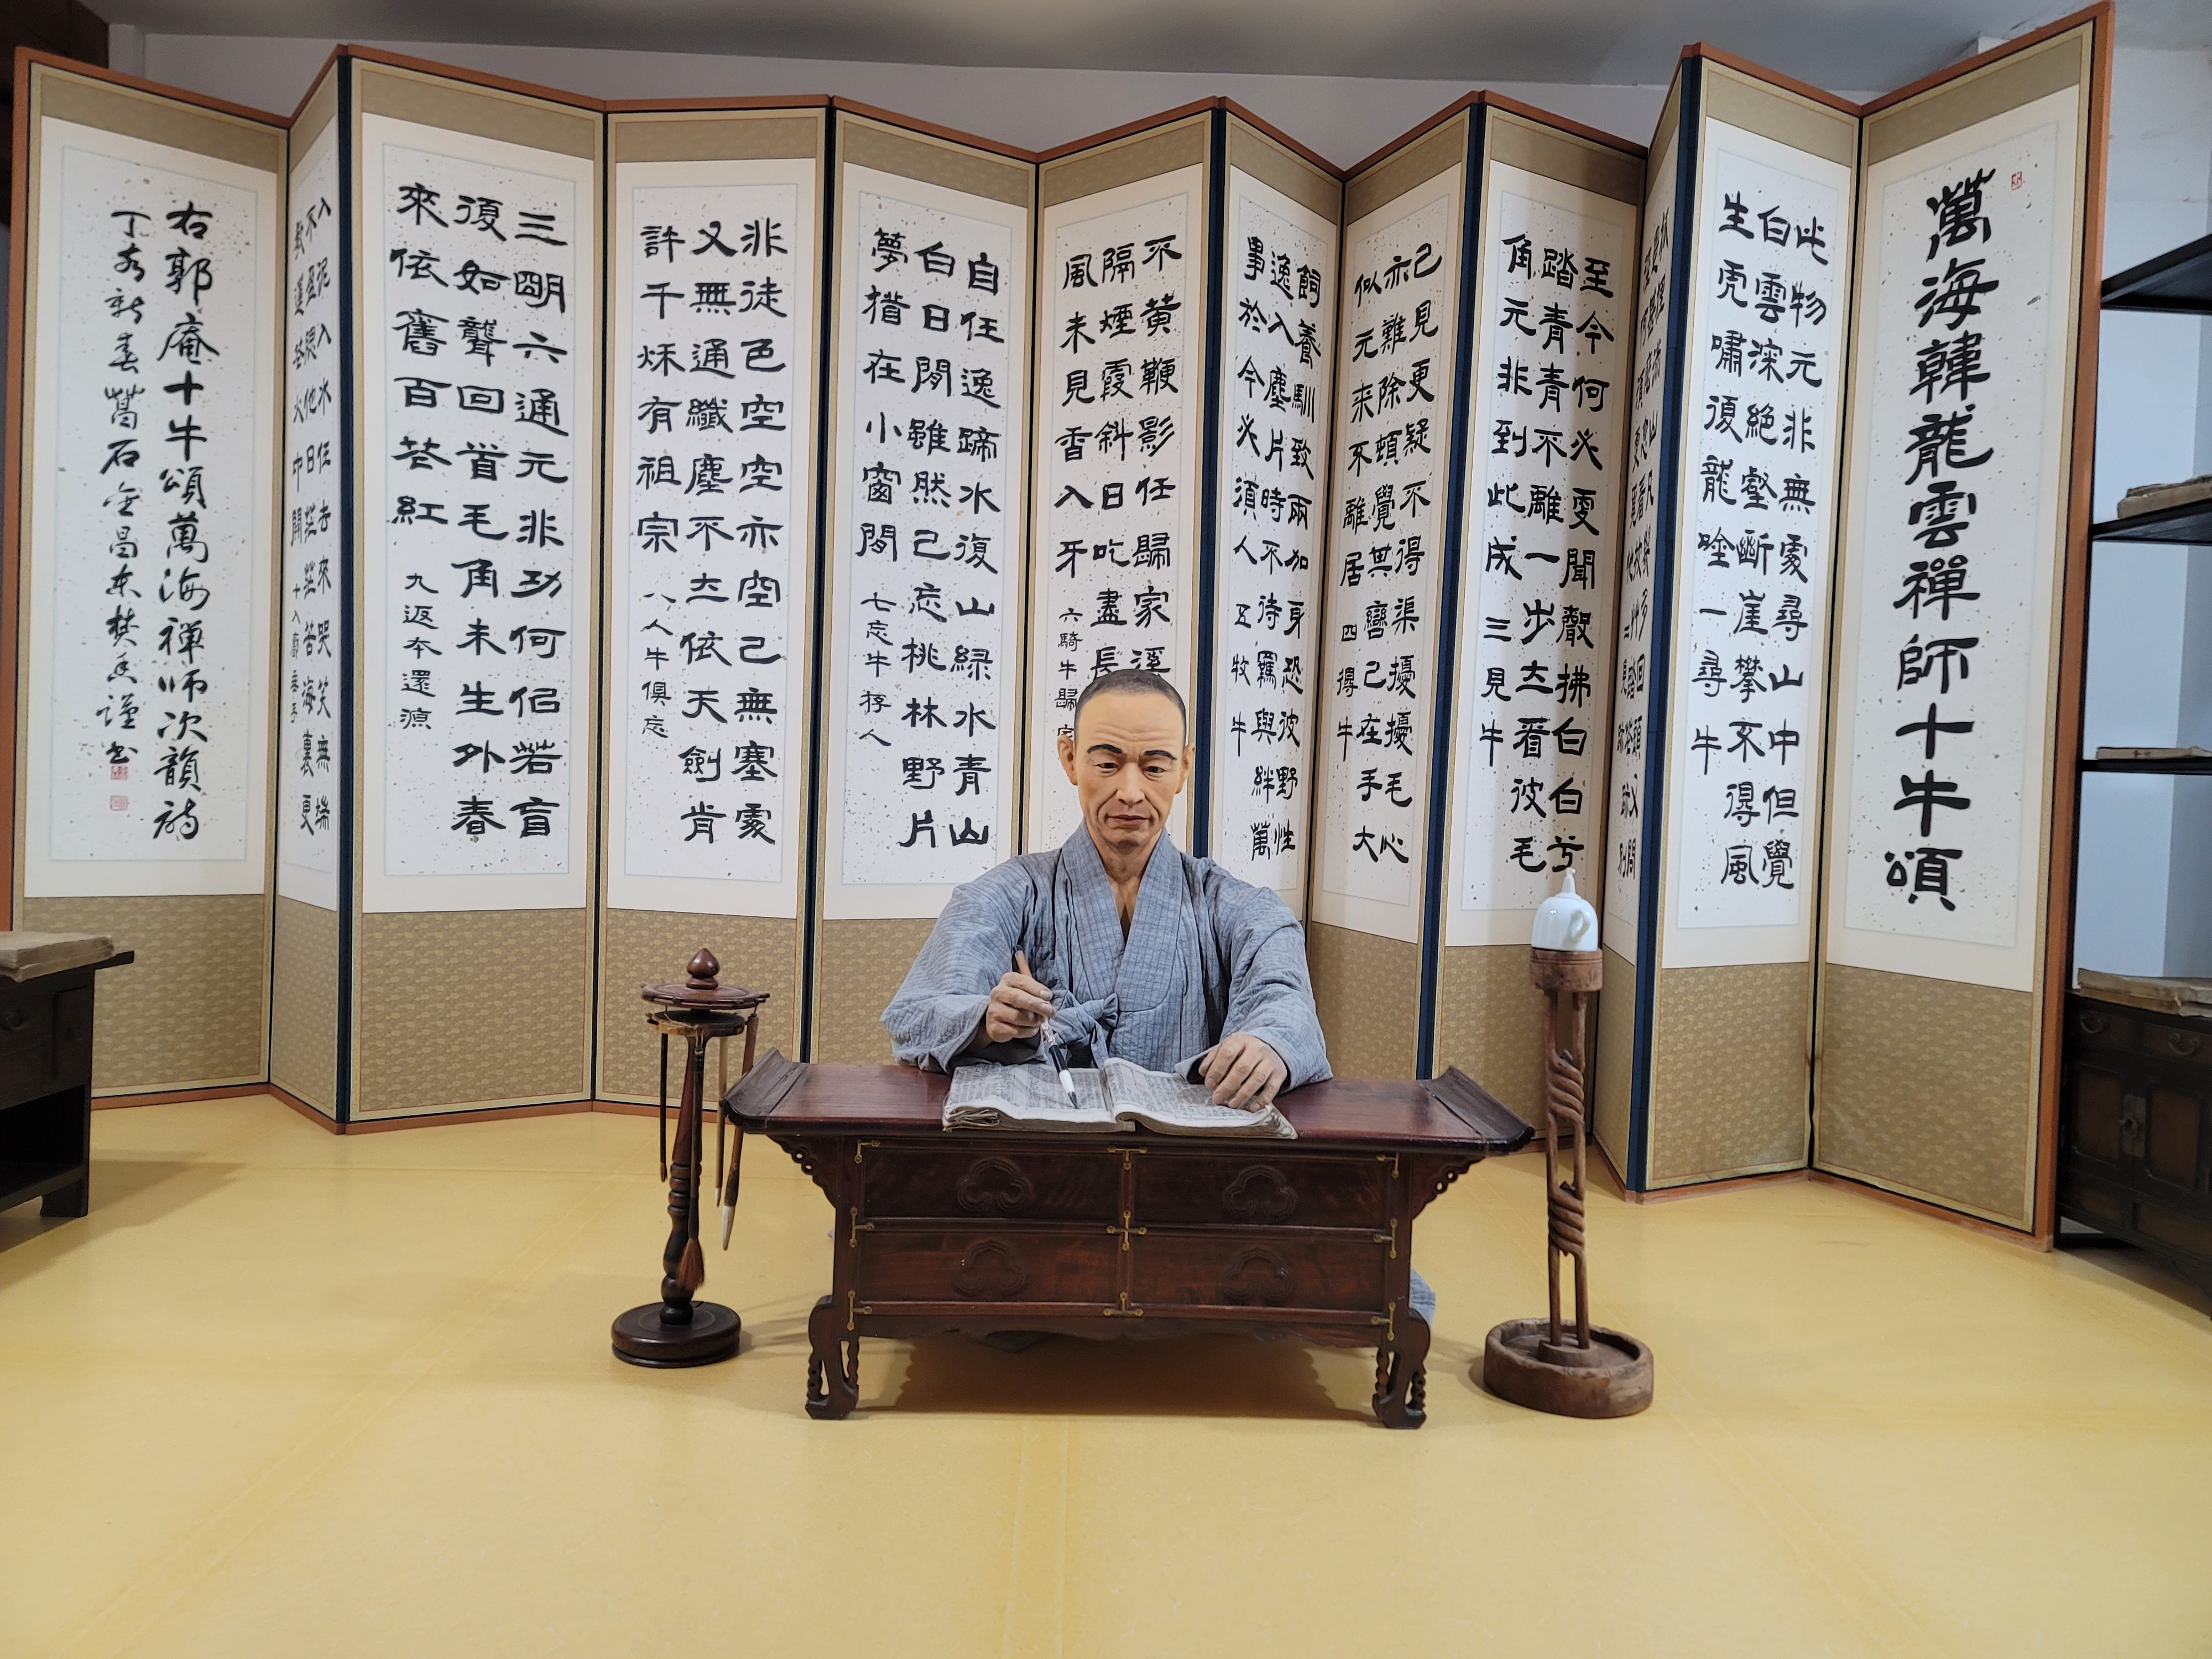 萬海韓龍雲禪師十牛頌
此物元非無處尋山中但覺
白雲深絕壑斷崖攀不得風
生虎嘯復龍唫一尋牛
至今何必更聞聲拂白白兮
踏青青不離一步立看彼毛
角元非到此成三見牛
已見更疑不得渠擾擾毛心
亦難除頓覺其轡已在手大
似元來不離居四得牛
飼養馴致兩加身恐彼野性
逸入塵片時不待羈與絆萬
事於今必須人五牧牛
不黃鞭影任歸家溪
隔煙霞斜日吃盡長
風未見香入牙六騎牛歸家
自任逸蹄水復山綠水青山
白日閒雖然已忘桃林野片
夢猶在小窗間七忘牛存人
非徒色空空亦空已無塞處
又無通纖塵不立依天劍肯
許千秋有祖宗八人牛俱忘
三明六通元非功何似若盲
復如聾回首毛角未生外春
來依舊百花紅九返本還源
入泥入水任去來哭笑無端
不盈腮他日茫茫苦海裏更
敎蓮花火中開十入廛垂手
右郭庵十牛頌萬海禪師次韻詩